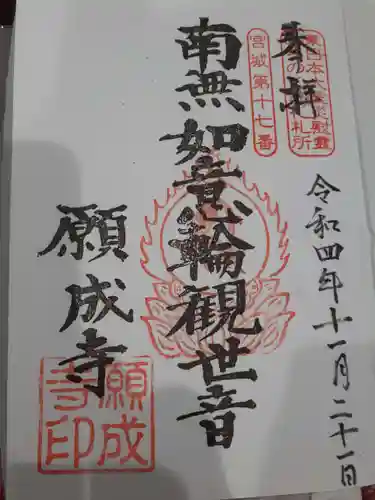 奉拝
宮城第十七番
令和四年十一月二十一日
南無如意輪観世音
願成寺
願成寺印